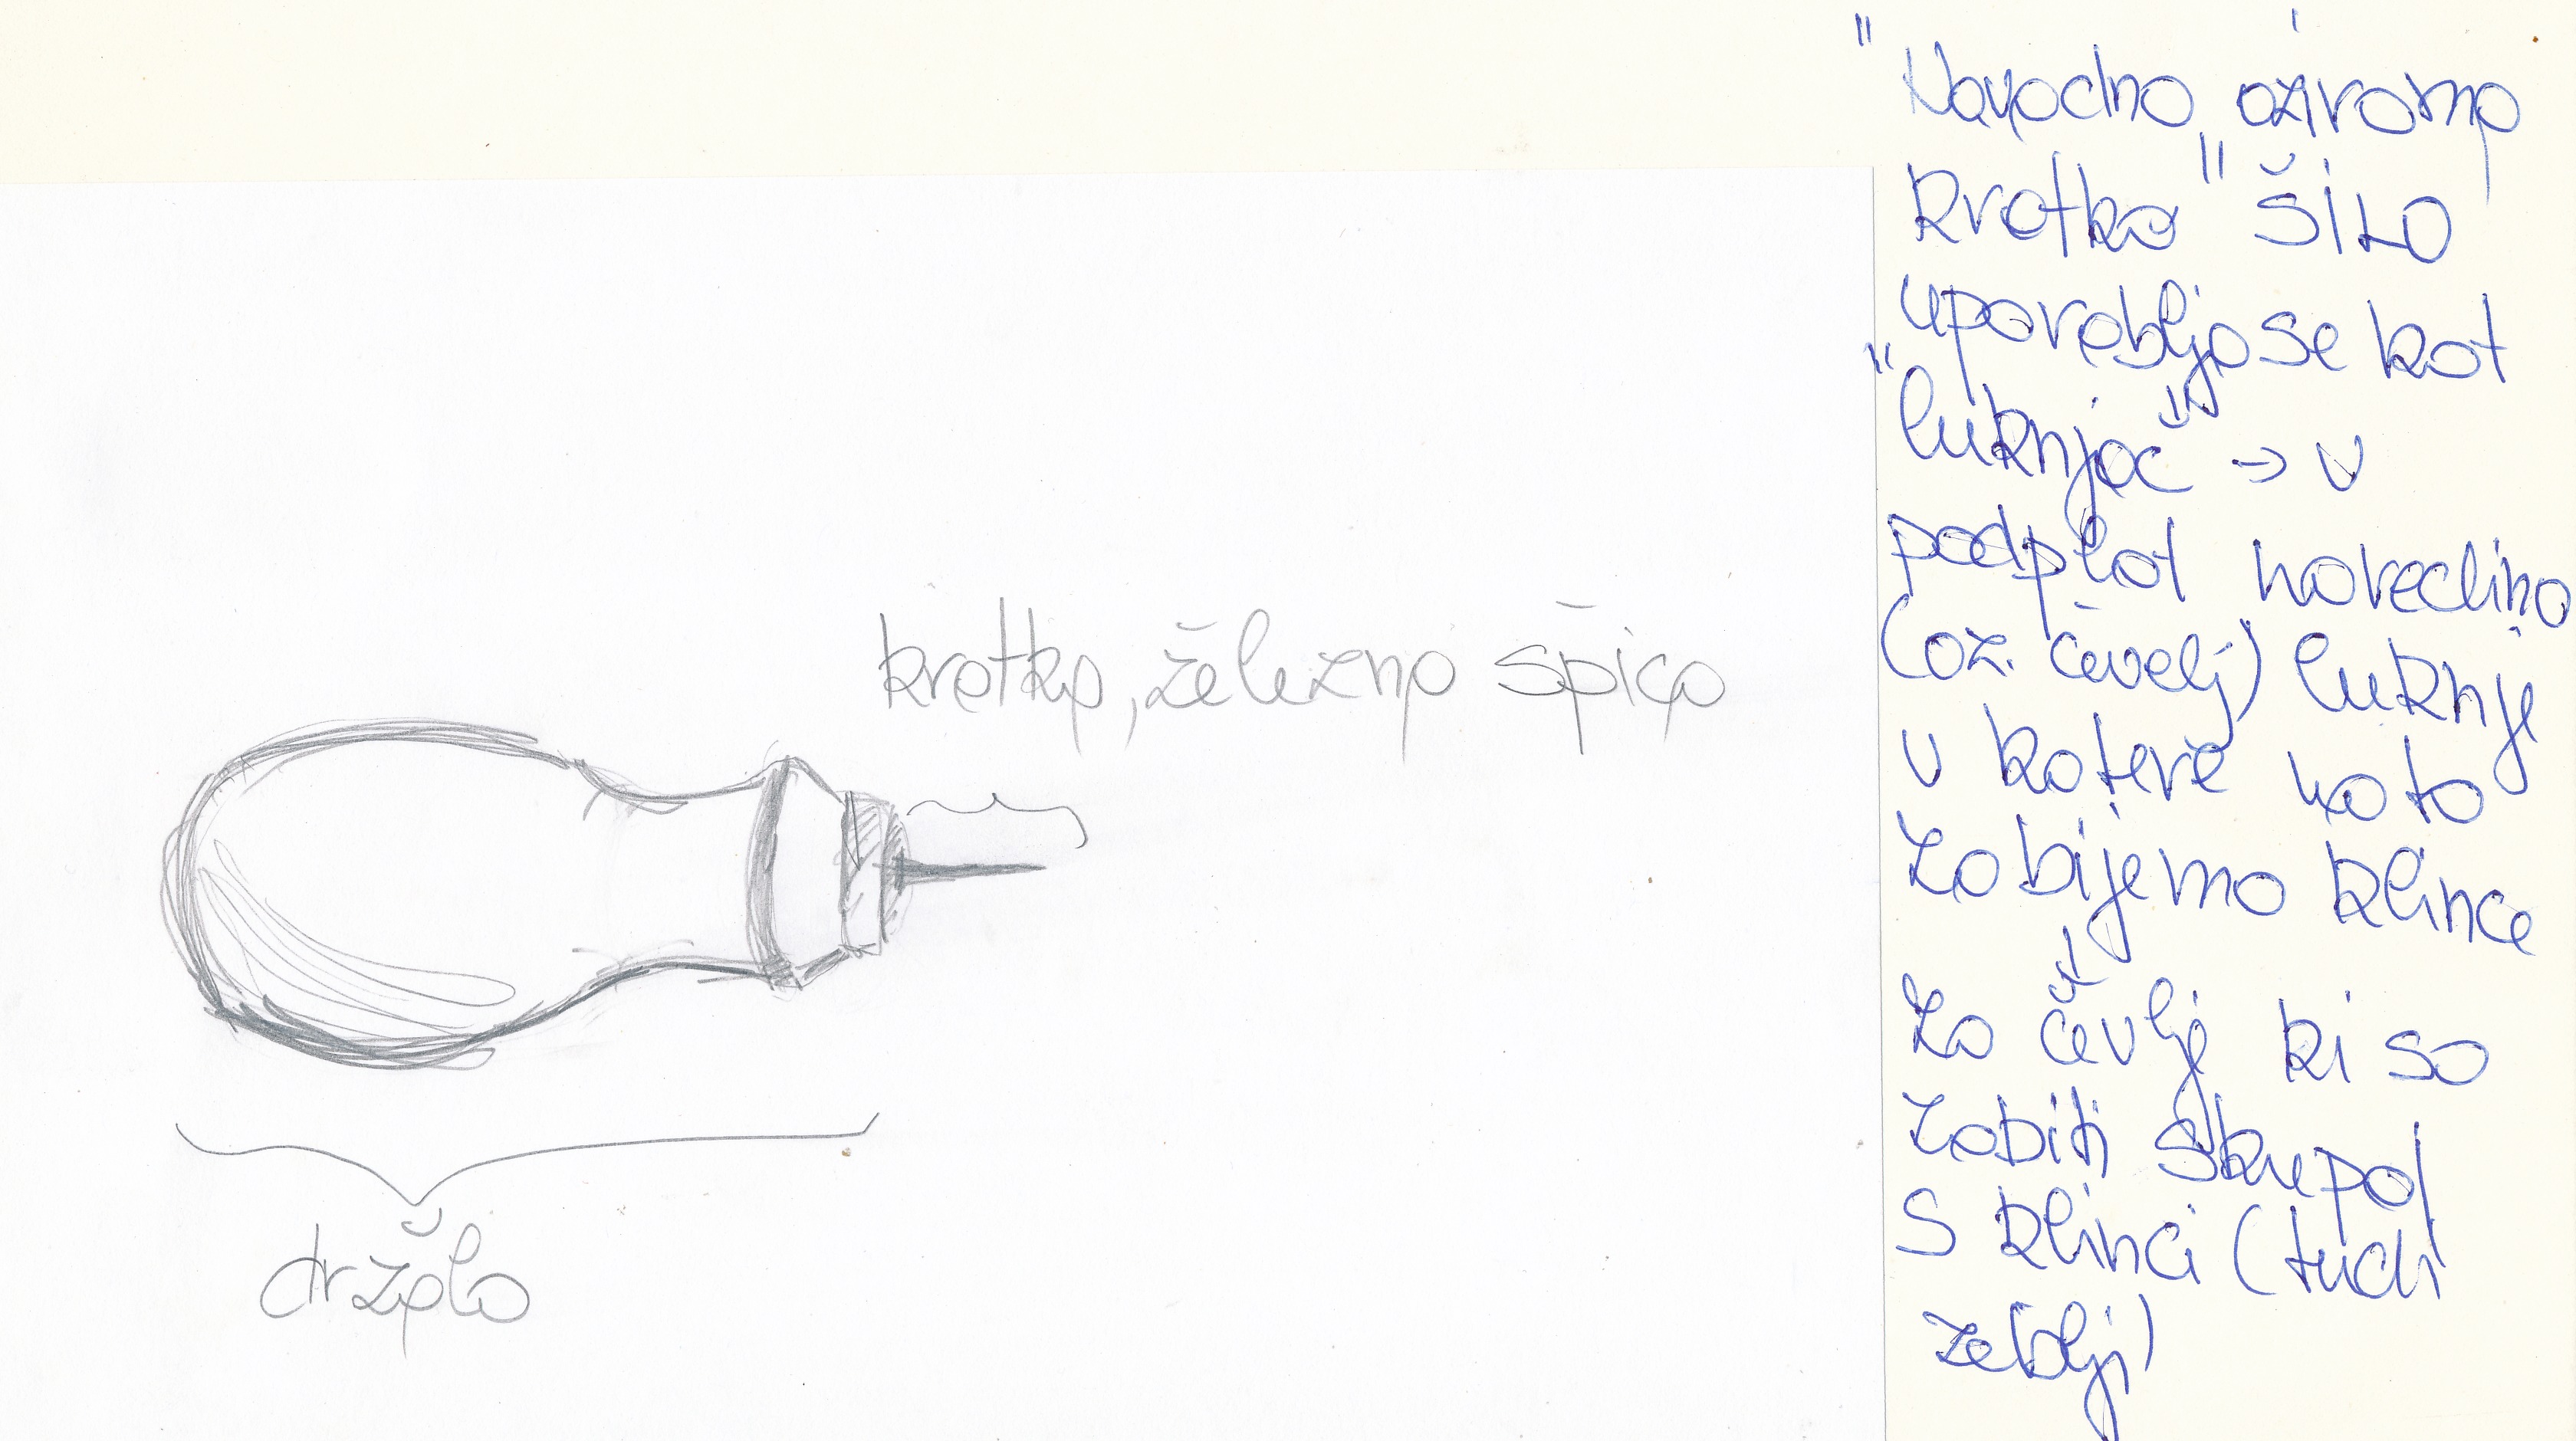 kratka, železna špica
držalo
"Navadno oziroma
kratko" ŠILO
uporablja se kot
"luknjač" → v
podplat naredimo
(oz. čevelj) luknje
v katere nato
zabijemo klince
↓
za čevlje ki so
zabiti skupaj
s klinci (tudi
žeblji)